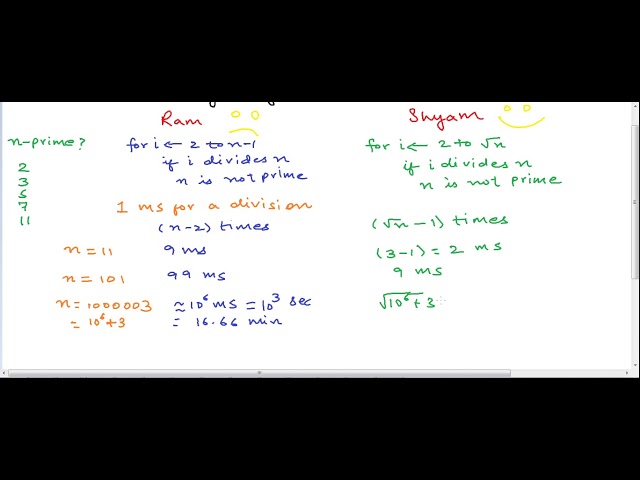 Ram
Shyam
n-prime?
2
3
5
7
11
for i ← 2 to n-1
if i divides n
n is not prime
for i ← 2 to √n
if i divides n
n is not prime
1 ms for a division
(n-2) times
(√n - 1) times
n = 11
9 ms
(3-1) = 2 ms
n = 101
99 ms
9 ms
n = 1000003
≈ 10⁶ ms = 10³ sec
√10⁶+3
= 10⁶+3
= 16.66 min